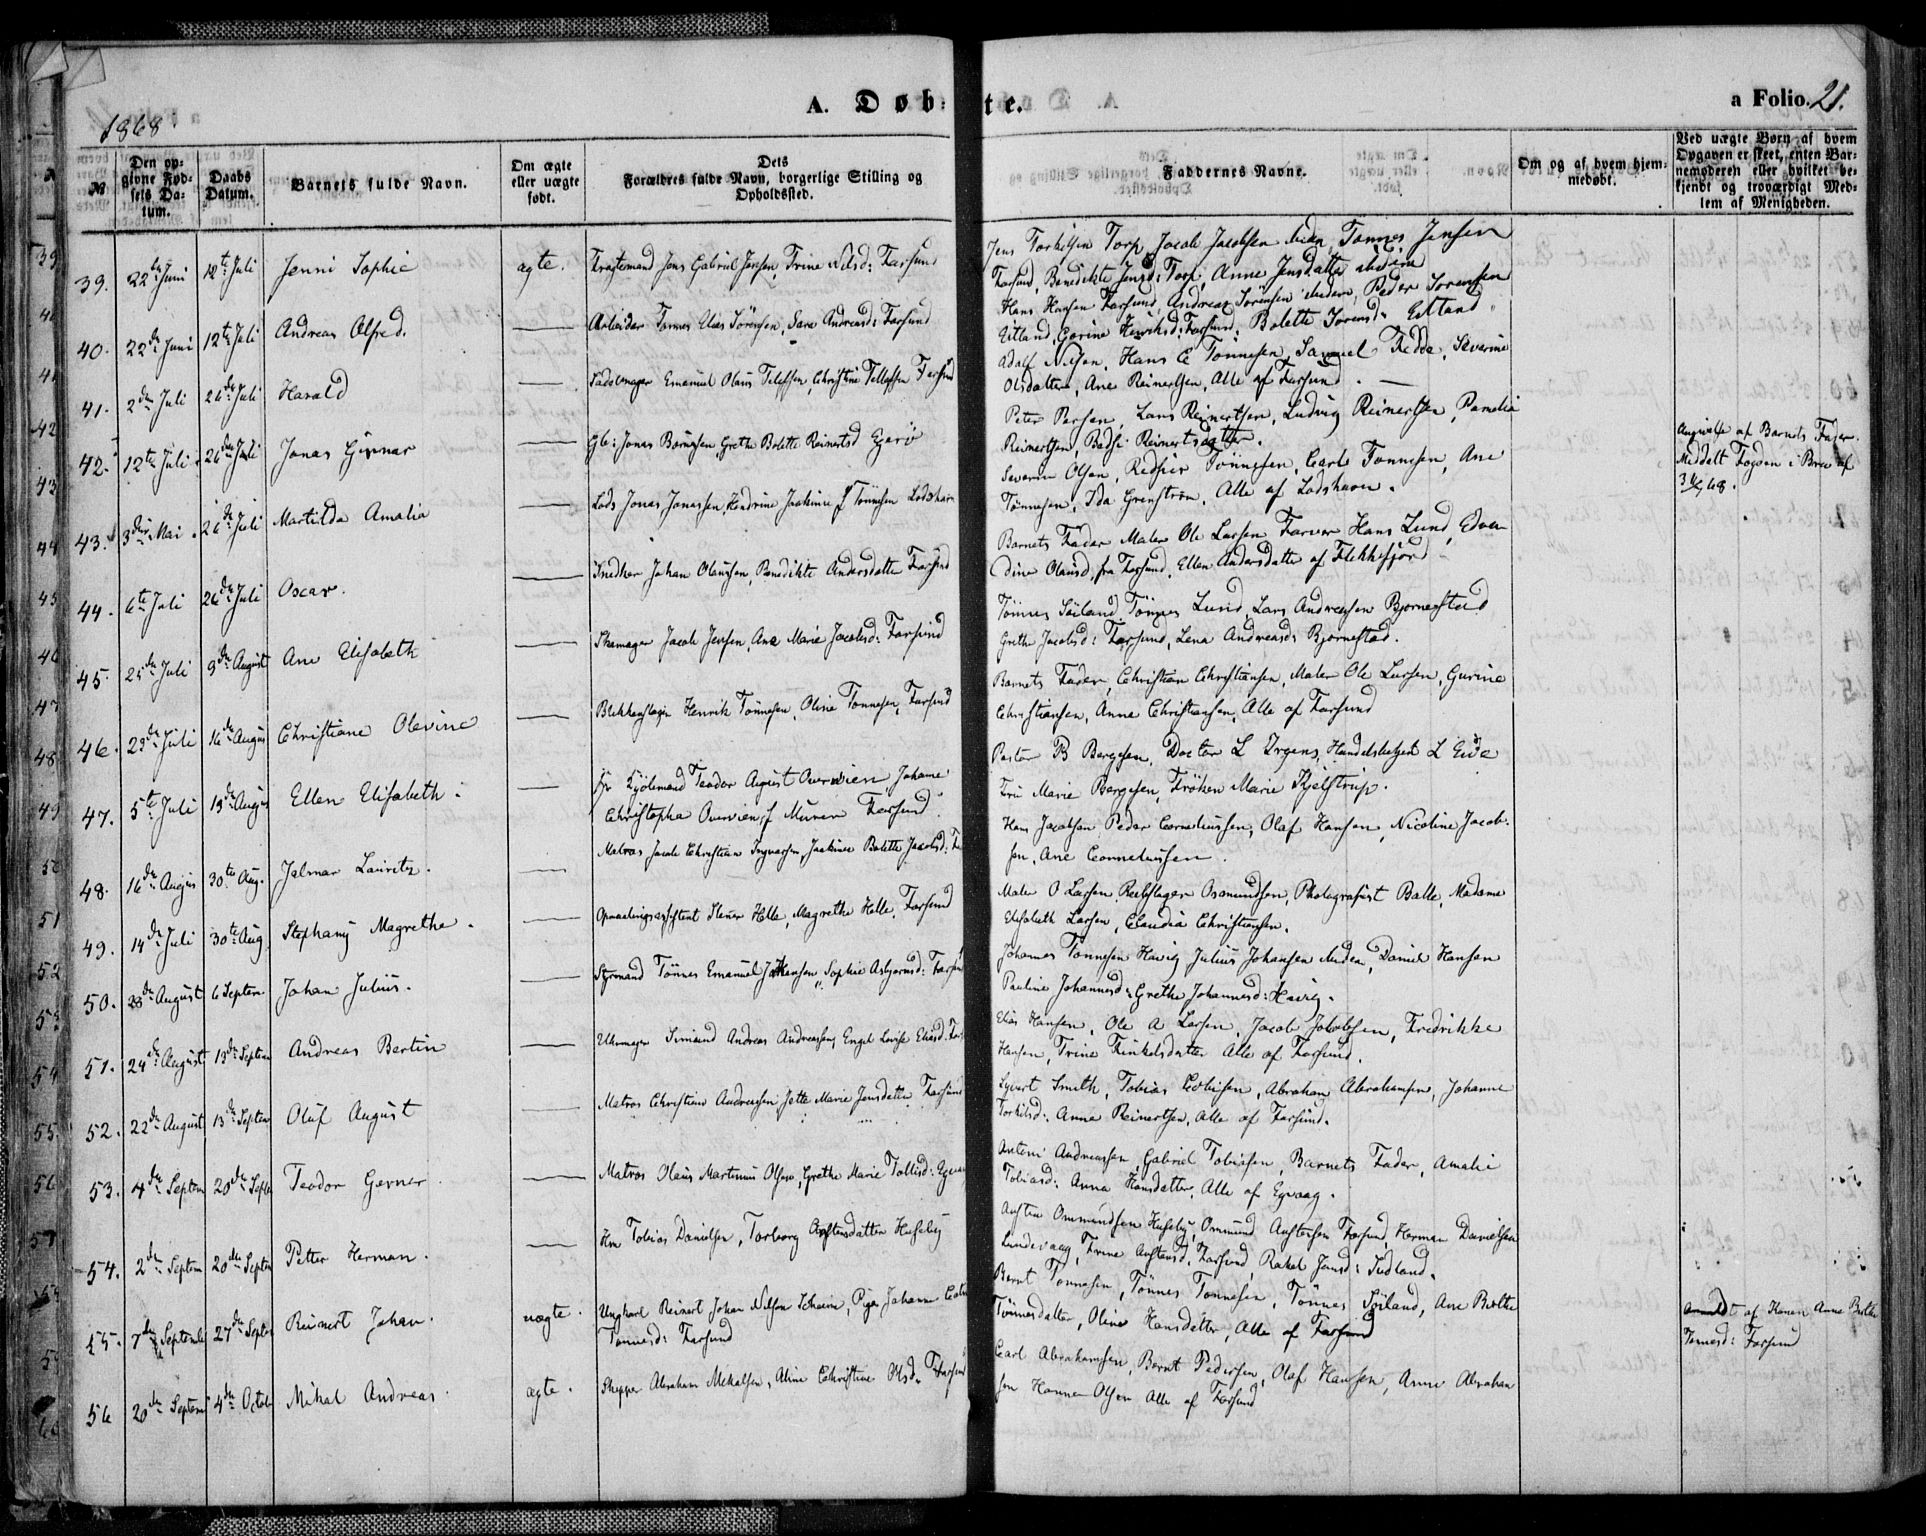 1868.
A. Døb-
te.
a Folio. 21.
№
Den op-
givne Fød-
sels Da-
tum.
Daabs
Datum.
Barnets fulde Navn.
Om ægte
eller uægte
født.
Dets
Forældres fulde Navn, borgerlige Stilling og
Opholdssted.
Faddernes Navne.
Om og af hvem hjem-
medøbt.
Ved uægte Børn, af hvem
Opgaven er skeet, enten Bar-
nemoderen eller hvilket be-
kjendt og troværdigt Med-
lem af Menigheden.
39. 22de Juni 12te Juli Jenni Sophie ægte. Fragtemand Jens Gabriel Jensen, Trine Nilsd: Farsund
Jens Torkilsen Torp, Jacob Jacobsen, Tønnes Jensen
Farsund, Benedikte Jensd: Torp, Anne Jensdatter
40. 22de Juni 12te Juli Andreas Alfred. — Arbeider Tønnes Elias Sørensen, Sara Andreasd: Farsund
Hans Hansen Farsund, Andreas Sørensen, Peder Sørensen
Eitland, Gorine Henriksd: Farsund, Bolette Sørensd: Eitland
41. 2den Juli 26de Juli Harald — Emanuel Olaus Tellefsen, Christine Tellefsen Farsund
Adolf Nilsen, Hans E Tønnesen, Samuel Fedde, Severine
Olsdatter, Ane Reinertsen, Alle af Farsund.
42. 12te Juli 26de Juli Jonas Gunnar — Jonas Børresen, Grethe Bolette Reinertsd Egerø
Peter Persen, Lars Reinertsen, Ludvig Reinertsen, Pamelia
Reinertsen, Betsi Reinertsdatter.
Angivelse af Barnets Fader
Meddelt Fogden i Brev af
43. 3die Mai 26de Juli Martilda Amalia — Lods Jonas Jonassen, Hendrine Jaakimine f Tønnesen Lodshavn
Severin Olsen, Tønnesen, Carl Tønnesen, Ane
Tønnesen, Ida Grenstrøm, Alle af Lodshavn.
44. 6te Juli 26de Juli Oscar. — Snedker Johan Olaussen, Benedikte Andersdatter Farsund
Barnets Fader Maler Ole Larsen Farver Hans Lund, Edvar
dine Olausd, fra Farsund, Ellen Andersdatter af Flekkefjord
45. 25de Juli 9de August Ane Elisabeth — Skomager Jacob Jensen, Ane Marie Jacobsd: Farsund
Tønnes Seiland, Tønnes Lund, Lars Andreassen Bjørnestad
Grethe Jacobsd: Farsund, Lena Andreasd: Bjørnestad.
46. 23de Juli 16de August Christiane Olevine — Blikkenslager Henrik Tønnesen, Oline Tønnesen, Farsund
Barnets Fader, Christian Christiansen, Maler Ole Larsen, Gurine
Christiansen, Anna Christiansen, Alle af Farsund
47. 5te Juli 19de August Ellen Elisabeth. — Teodor August Overwien, Johanne
Christopha Overwien, f Murer Farsund
Pastor B Bergesen, Doctor L Irgens, Handelsbetjent L Eide
Fru Marie Bergesen, Frøken Marie Kjelstrup.
48. 16de August 30te Aug. Jalmar Lauritz. — Matros Jacob Christian Ingvaldsen, Jaakime Bolette Jacobsd:
Hans Jacobsen, Peder Corneliussen, Olaf Hansen, Nicoline Jacob-
sen, Ane Corneliussen.
49. 14de Juli 30te Aug Stephany Magrethe. — Opmaalingsassistent Stener Helle, Magrethe Helle, Farsund
Maler O Larsen, Rebslager Osmundsen, Photografist Balle, Madame
Elisabeth Larsen, Claudia Christiansen.
50. 28de August 6 Septem Johan Julius. — Styrmand Tønnes Emanuel Johansen, Sophie Asbjørnsd: Farsund
Johannes Tønnesen Havig, Julius Johansen, Daniel Hansen
Pauline Johannesd: Grethe Johannesd: Havig.
51. 24de August 13de Septem Andreas Bertin — Uhrmager Simund Andreas Andreassen, Engel Lovise Eliasd
Elias Hansen, Ole A Larsen, Jacob Jakobsen, Fredrikke
Hansen, Trine Finkelsdatter Alle af Farsund.
52. 22de August 13de Septem Oluf August — Matros Christian Andreassen, Jette Marie Jensdatter Farsund
Syvert Smith, Tobias Tobisen, Abraham Abrahamsen, Johanne
Torkilsd: Anna Reinertsen, Alle af Farsund.
53. 4de Septem 20de Septem Teodor Gerner. — Matros Olaus Martinius Olsen, Grethe Marie Tollisd:
Andreassen Gabriel Tobiasen, Barnets Fader, Amalie
Tobiasd: Anna Hansdatter, Alle af Egvaag.
54. 2de Septem 20de Septem Petter Herman. — Tobias Danielsen, Torborg Austensdatter Huseby
Austen Ommundsen Huseby, Ommund Austensen Farsund, Herman Danielsen
Lundevaag, Trine Austensd, Farsund, Rakel Jansd: Sudland.
55. 7de Septemb 27de Septem Reinert Johan. uægte. Ungkarl Reinert Johan Nilsen, Pige Johanne
Tønnesd: Farsund
Bernt Tønnesen, Tønnes Tønnesen, Tønnes Seiland, Ane Berthe
Tønnesdatter, Oline Hansdatter, Alle af Farsund
Anmeldt af Konen Anne Berthe
Tønnesd: Farsund
56 20de Septem 4de Octob Mikal Andreas. ægte. Skipper Abraham Mikalsen, Aline Christine Olsd. Farsund
Carl Abrahamsen, Bernt Pedersen, Olaf Hansen, Anne Abraham
sen Hanne Olsen Alle af Farsund